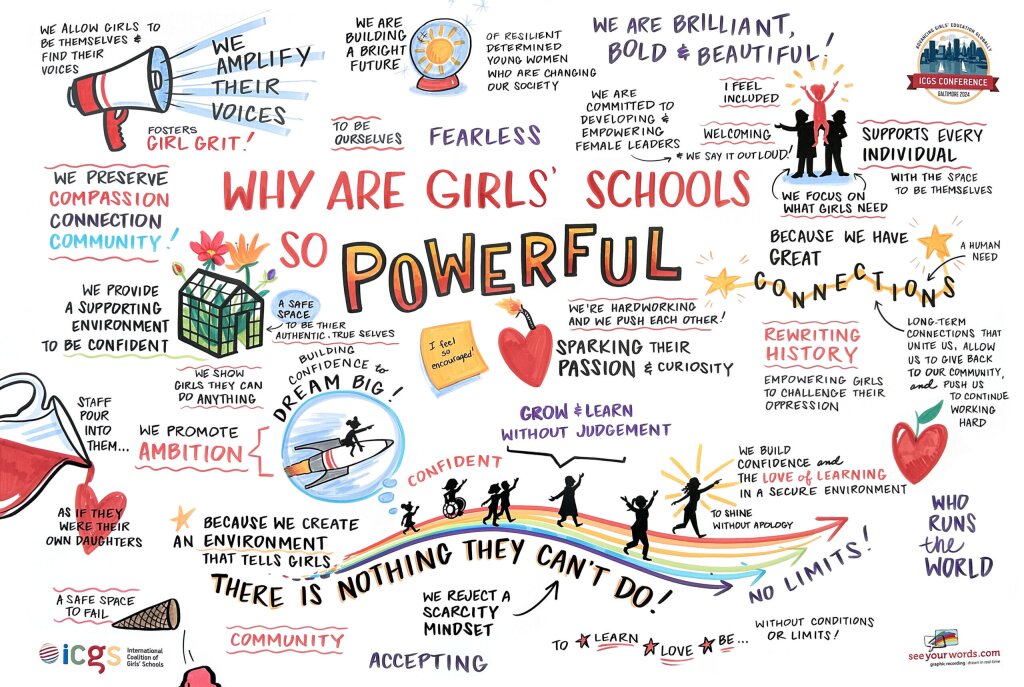 WE ALLOW GIRLS TO
BE THEMSELVES &
FIND THEIR
VOICES
WE
AMPLIFY
THEIR
VOICES
FOSTERS
GIRL GRIT!
WE ARE
BUILDING
A BRIGHT
FUTURE
OF RESILIENT
DETERMINED
YOUNG WOMEN
WHO ARE CHANGING
OUR SOCIETY
WE ARE BRILLIANT,
BOLD & BEAUTIFUL!
ADVANCING GIRLS' EDUCATION GLOBALLY
ICGS CONFERENCE
BALTIMORE 2024
TO BE
OURSELVES
FEARLESS
WE ARE
COMMITTED TO
DEVELOPING &
EMPOWERING
FEMALE LEADERS
& WE SAY IT OUT LOUD!
I FEEL
INCLUDED
WELCOMING
WE FOCUS ON
WHAT GIRLS NEED
SUPPORTS EVERY
INDIVIDUAL
WITH THE SPACE
TO BE THEMSELVES
WE PRESERVE
COMPASSION
CONNECTION
COMMUNITY!
WHY ARE GIRLS' SCHOOLS
SO POWERFUL
BECAUSE WE HAVE
GREAT
CONNECTIONS
A HUMAN
NEED
WE PROVIDE
A SUPPORTING
ENVIRONMENT
TO BE CONFIDENT
A SAFE
SPACE
TO BE THIER
AUTHENTIC, TRUE SELVES
I feel
so
encouraged!
WE'RE HARDWORKING
AND WE PUSH EACH OTHER!
SPARKING THEIR
PASSION & CURIOSITY
REWRITING
HISTORY
EMPOWERING GIRLS
TO CHALLENGE THEIR
OPRESSION
LONG-TERM
CONNECTIONS THAT
UNITE US, ALLOW
US TO GIVE BACK
TO OUR COMMUNITY,
and PUSH US
TO CONTINUE
WORKING
HARD
WE SHOW
GIRLS THEY CAN
DO ANYTHING
BUILDING
CONFIDENCE to
DREAM BIG!
STAFF
POUR
INTO
THEM...
AS IF THEY
WERE THEIR
OWN DAUGHTERS
WE PROMOTE
AMBITION
GROW & LEARN
WITHOUT JUDGEMENT
CONFIDENT
WE BUILD
CONFIDENCE and
THE LOVE of LEARNING
IN A SECURE ENVIRONMENT
TO SHINE
WITHOUT APOLOGY
WHO
RUNS
the
WORLD
BECAUSE WE CREATE
AN ENVIRONMENT
THAT TELLS GIRLS
THERE IS NOTHING THEY CAN'T DO!
NO LIMITS!
A SAFE SPACE
TO FAIL
WE REJECT A
SCARCITY
MINDSET
COMMUNITY
ACCEPTING
TO LEARN LOVE BE...
WITHOUT CONDITIONS
OR LIMITS!
icgs International
Coalition of
Girls' Schools
seeyourwords.com
graphic recording | drawn in real-time